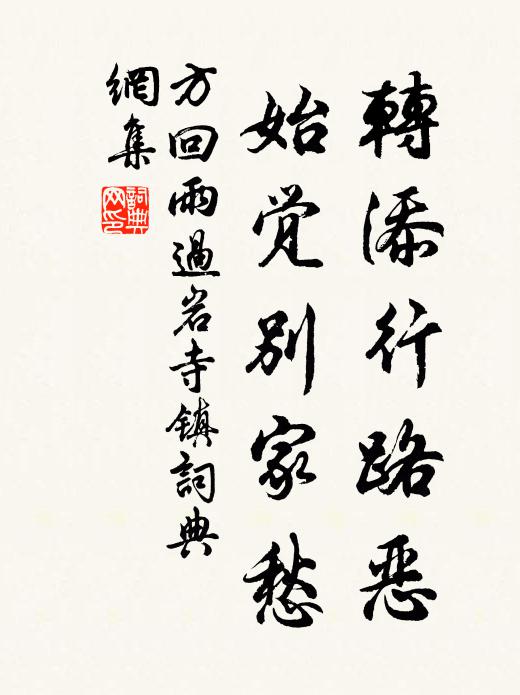 轉添行路惡
始覺別家愁
方回雨過岩寺鎮詞典
網集
詞典網印